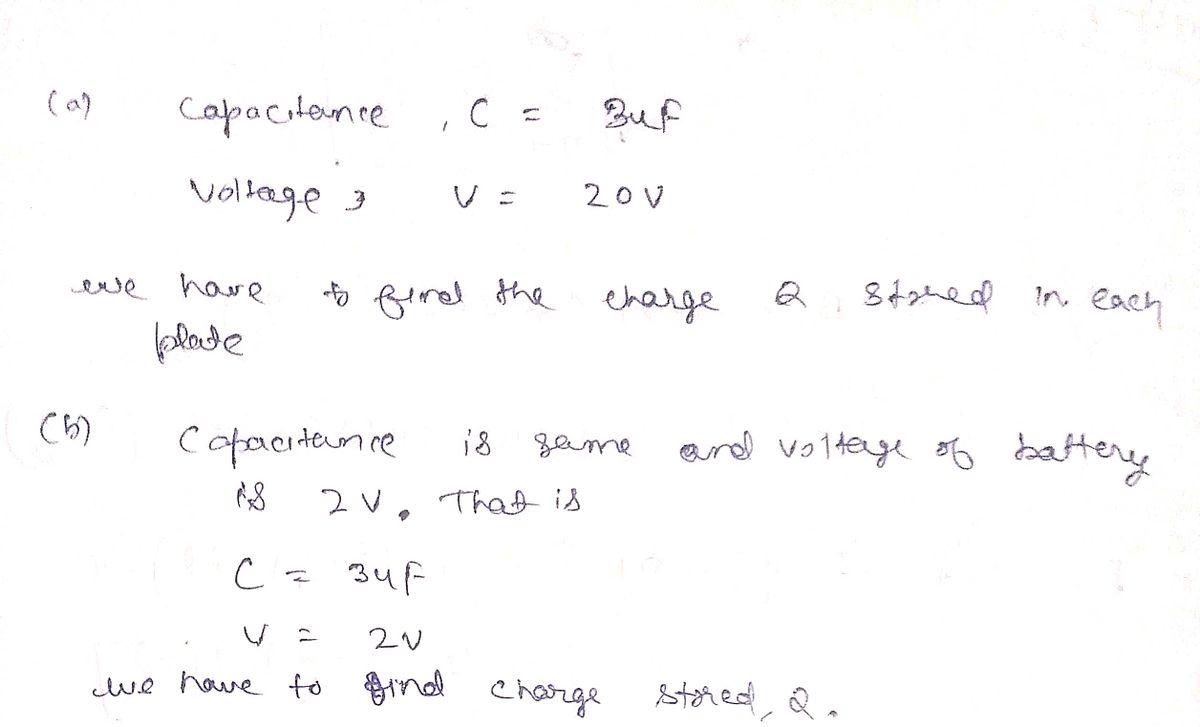 (a) Capacitance , C = 3uF
Voltage, V = 20V
we have to find the charge Q stored in each
plate
(b) Capacitance is same and voltage of battery
is 2V. That is
C = 3uF
V = 2V
we have to find charge stored, Q.